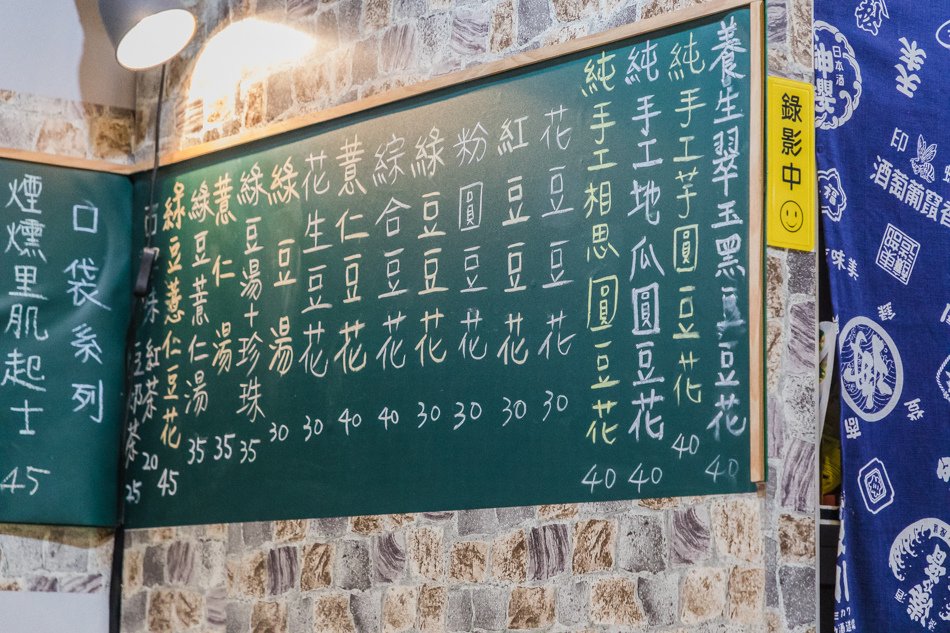 養生翠玉黑豆豆花 40
純手工芋圓豆花 40
純手工地瓜圓豆花 40
純手工相思圓豆花 40
花豆豆花 30
紅豆豆花 30
粉圓豆花 30
綠豆豆花 30
綜合豆花 40
薏仁豆花 40
花生豆花 30
綠豆湯 30
綠豆湯+珍珠 35
薏仁湯 35
綠豆薏仁湯 35
綠豆薏仁豆花 45
紅茶 20
奶茶 25
口袋系列
煙燻里肌起士 45
錄影中
日本酒
印
酒葡萄
味美